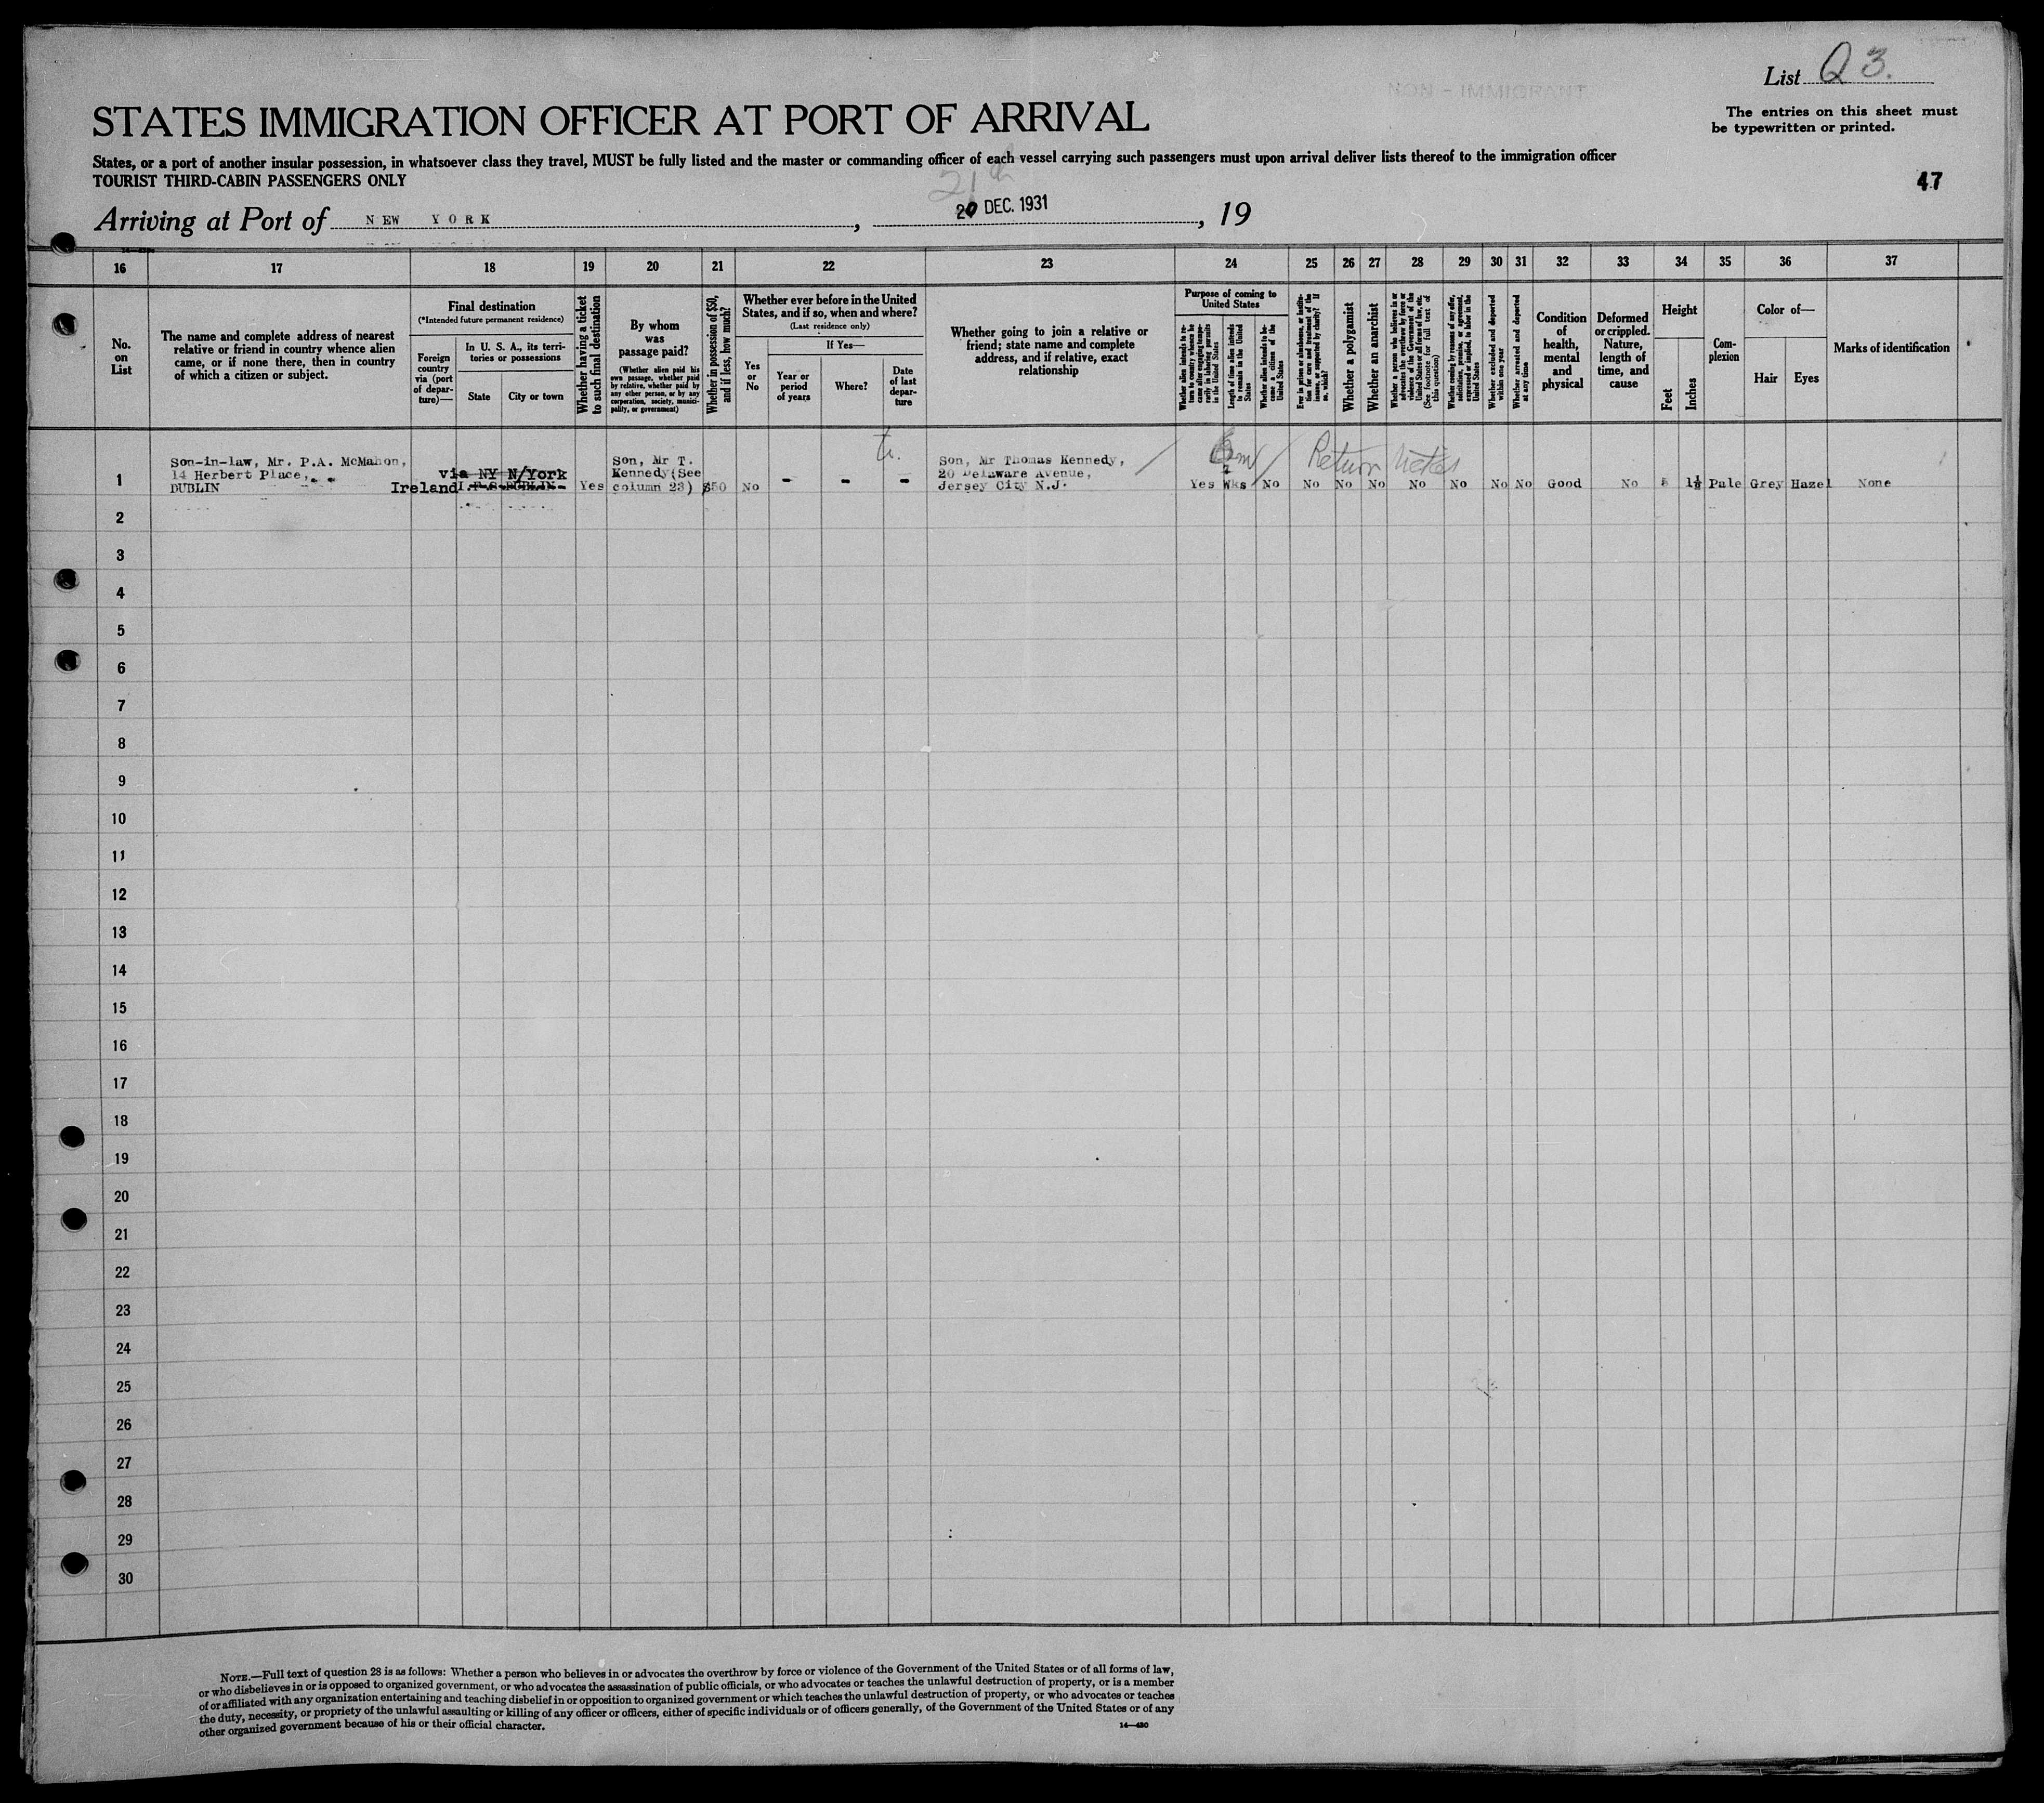 List Q 3.
NON - IMMIGRANT
STATES IMMIGRATION OFFICER AT PORT OF ARRIVAL
The entries on this sheet must
be typewritten or printed.
States, or a port of another insular possession, in whatsoever class they travel, MUST be fully listed and the master or commanding officer of each vessel carrying such passengers must upon arrival deliver lists thereof to the immigration officer
TOURIST THIRD-CABIN PASSENGERS ONLY
47
21st
Arriving at Port of NEW YORK, 20 DEC. 1931, 19
16 17 18 19 20 21 22 23 24 25 26 27 28 29 30 31 32 33 34 35 36 37
No.
on
List
The name and complete address of nearest
relative or friend in country whence alien
came, or if none there, then in country
of which a citizen or subject.
Final destination
(*Intended future permanent residence)
Foreign
country
via (port
of depar-
ture)—
In U. S. A., its terri-
tories or possessions
State
City or town
Whether having a ticket
to such final destination
By whom
was
passage paid?
(Whether alien paid his
own passage, whether paid
by relative, whether paid by
any other person, or by any
corporation, society, munici-
pality, or government)
Whether in possession of $50,
and if less, how much?
Whether ever before in the United
States, and if so, when and where?
(Last residence only)
Yes
or
No
If Yes—
Year or
period
of years
Where?
Date
of last
depar-
ture
Whether going to join a relative or
friend; state name and complete
address, and if relative, exact
relationship
Purpose of coming to
United States
Whether alien intends to re-
turn to country whence he
came after engaging tempo-
rarily in laboring pursuits
in the United States
Length of time alien intends
to remain in the United
States
Whether alien intends to be-
come a citizen of the
United States
Ever in prison or almshouse, or institu-
tion for care and treatment of the
insane, or supported by charity? If
so, which?
Whether a polygamist
Whether an anarchist
Whether a person who believes in or
advocates the overthrow by force or
violence of the Government of the
United States or all forms of law, etc.
(See footnote for full text of
this question)
Whether coming by reason of any offer,
solicitation, promise, or agreement,
expressed or implied, to labor in the
United States
Whether excluded and deported
within one year
Whether arrested and deported
at any time
Condition
of
health,
mental
and
physical
Deformed
or crippled.
Nature,
length of
time, and
cause
Height
Feet
Inches
Com-
plexion
Color of—
Hair
Eyes
Marks of identification
1
Son-in-law, Mr. P.A. McMahon,
14 Herbert Place,
DUBLIN
via NY N/York
Ireland I.F.S. DUBLIN
Yes
Son, Mr T.
Kennedy (See
column 23)
$50
No - - -
Son, Mr Thomas Kennedy,
20 Delaware Avenue,
Jersey City N.J.
6m
Return
Yes Wks No No No No No No No No Good No 5 1½ Pale Grey Hazel None
2
3
4
5
6
7
8
9
10
11
12
13
14
15
16
17
18
19
20
21
22
23
24
25
26
27
28
29
30
NOTE.—Full text of question 28 is as follows: Whether a person who believes in or advocates the overthrow by force or violence of the Government of the United States or of all forms of law,
or who disbelieves in or is opposed to organized government, or who advocates the assassination of public officials, or who advocates or teaches the unlawful destruction of property, or is a member
of or affiliated with any organization entertaining and teaching disbelief in or opposition to organized government or which teaches the unlawful destruction of property, or who advocates or teaches
the duty, necessity, or propriety of the unlawful assaulting or killing of any officer or officers, either of specific individuals or of officers generally, of the Government of the United States or of any
other organized government because of his or their official character.
14—430